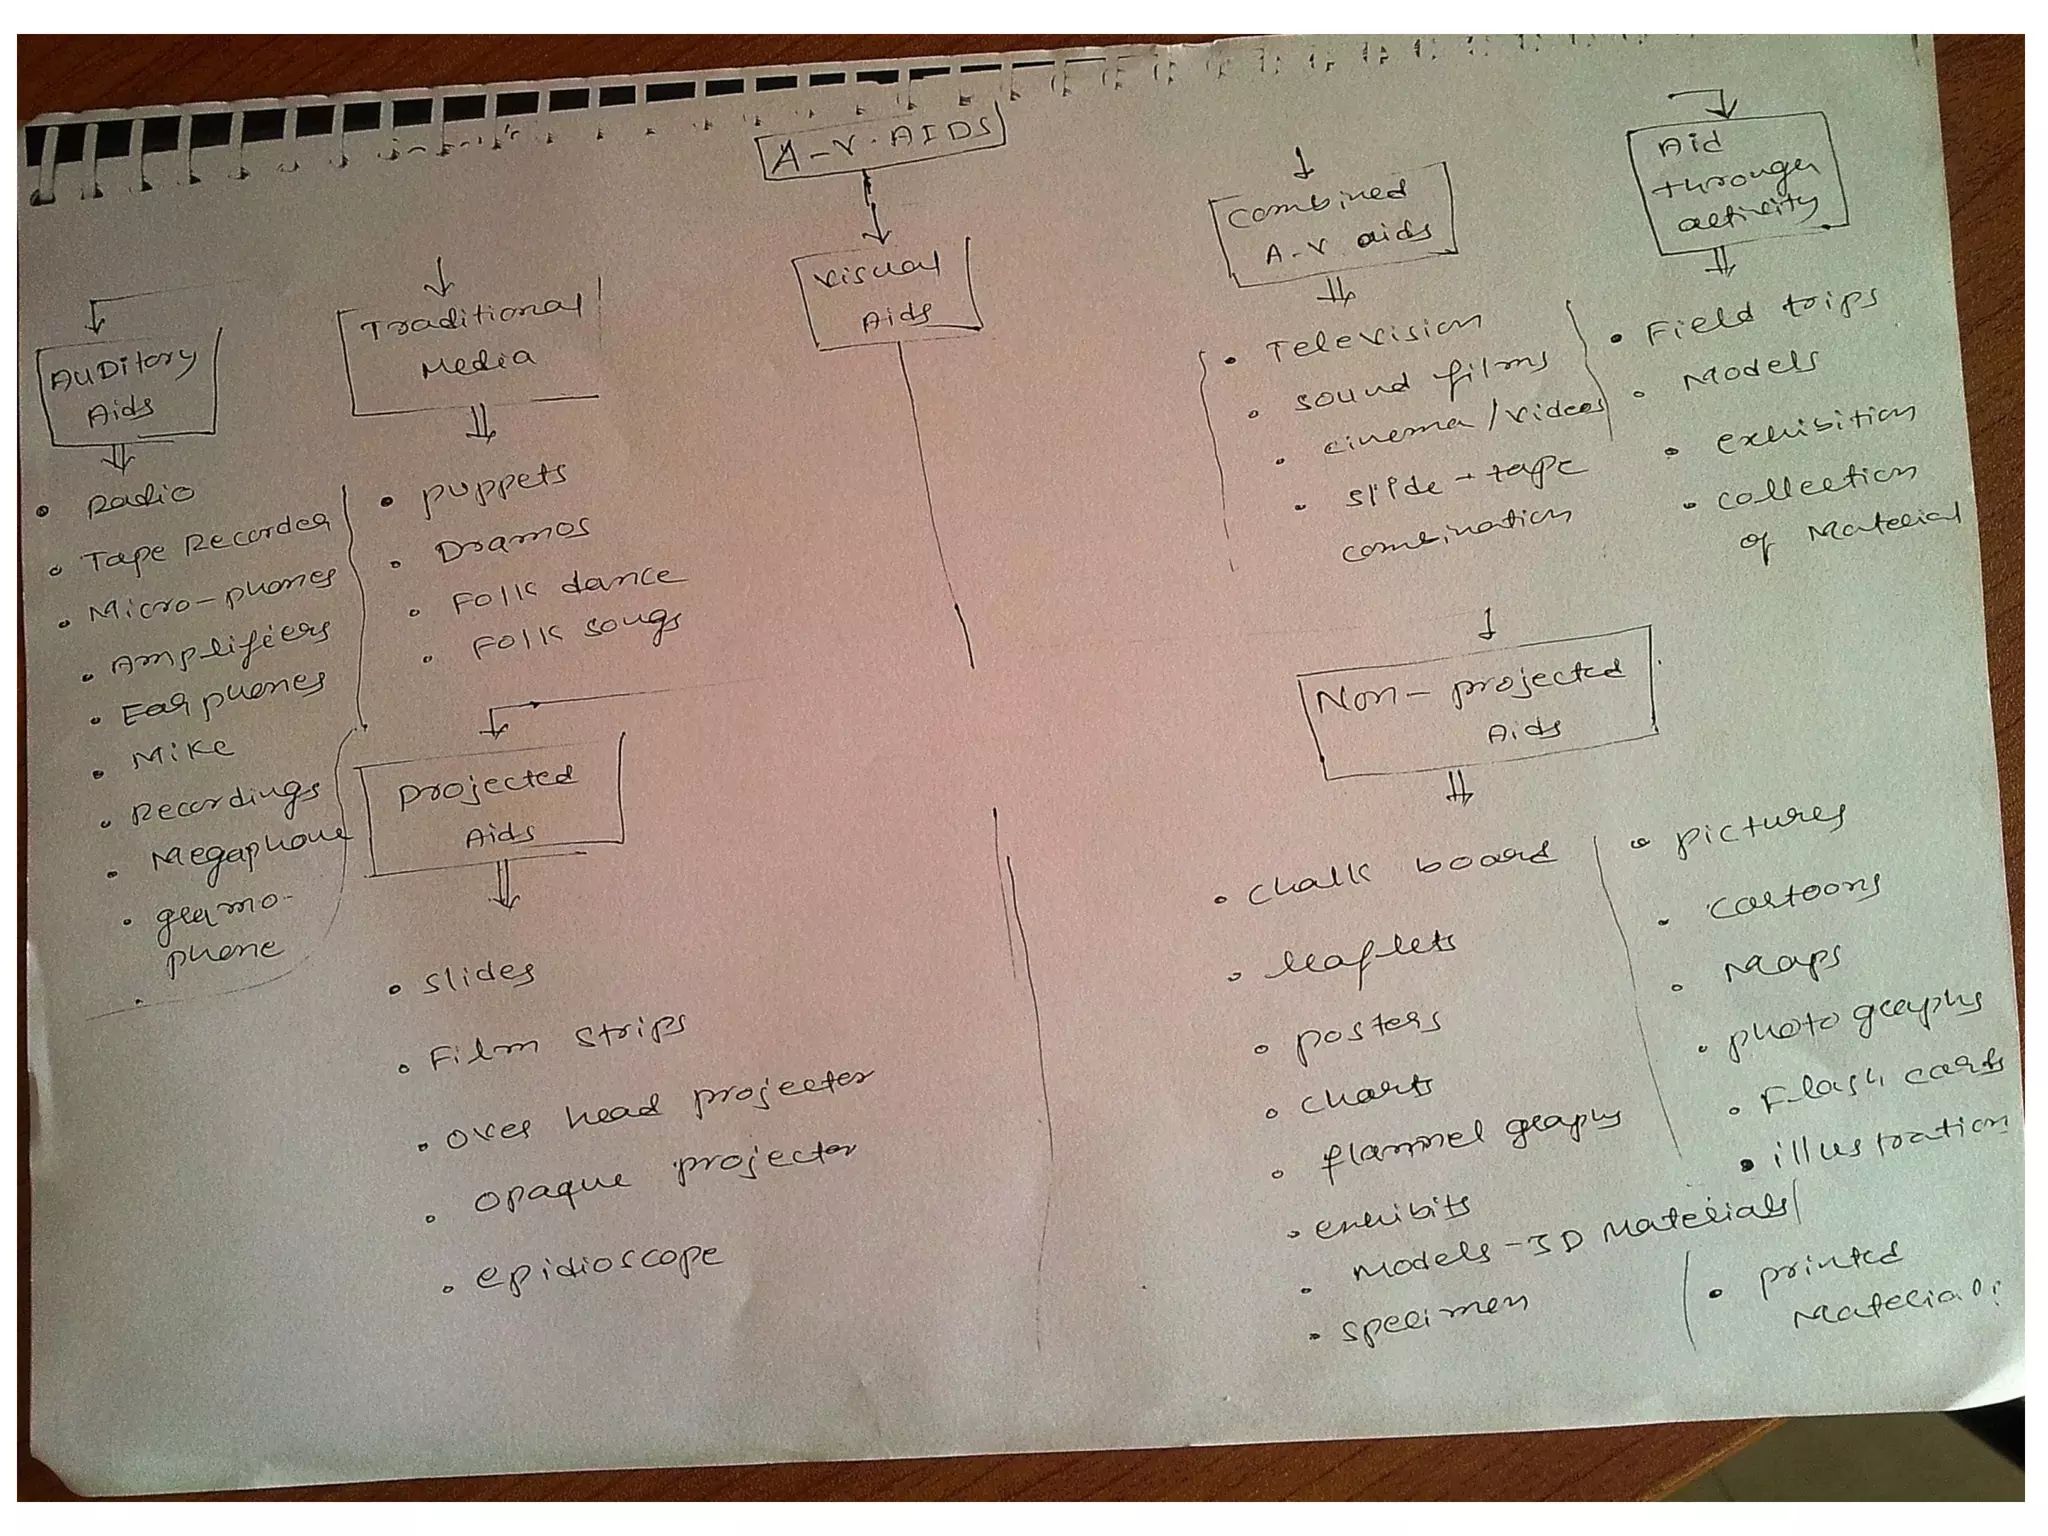 A-V. AIDS
AUDitory
Aids
Radio
Tape Recorder
Micro-phones
Amplifiers
Ear phones
Mike
Recordings
Megaphone
gramo-
phone
Traditional
Media
puppets
Dramas
Folk dance
Folk songs
visual
Aids
Combined
A-V aids
Television
sound films
cinema / videos
slide - tape
combination
Aid
through
activity
Field trips
Models
exhibition
collection
of Material
projected
Aids
slides
Film strips
over head projector
opaque projector
epidioscope
Non-projected
Aids
chalk board
leaflets
posters
charts
flannel graphs
exhibits
models-3D Materials
specimen
pictures
cartoons
Maps
photo graphs
Flash cards
illustration
printed
Material